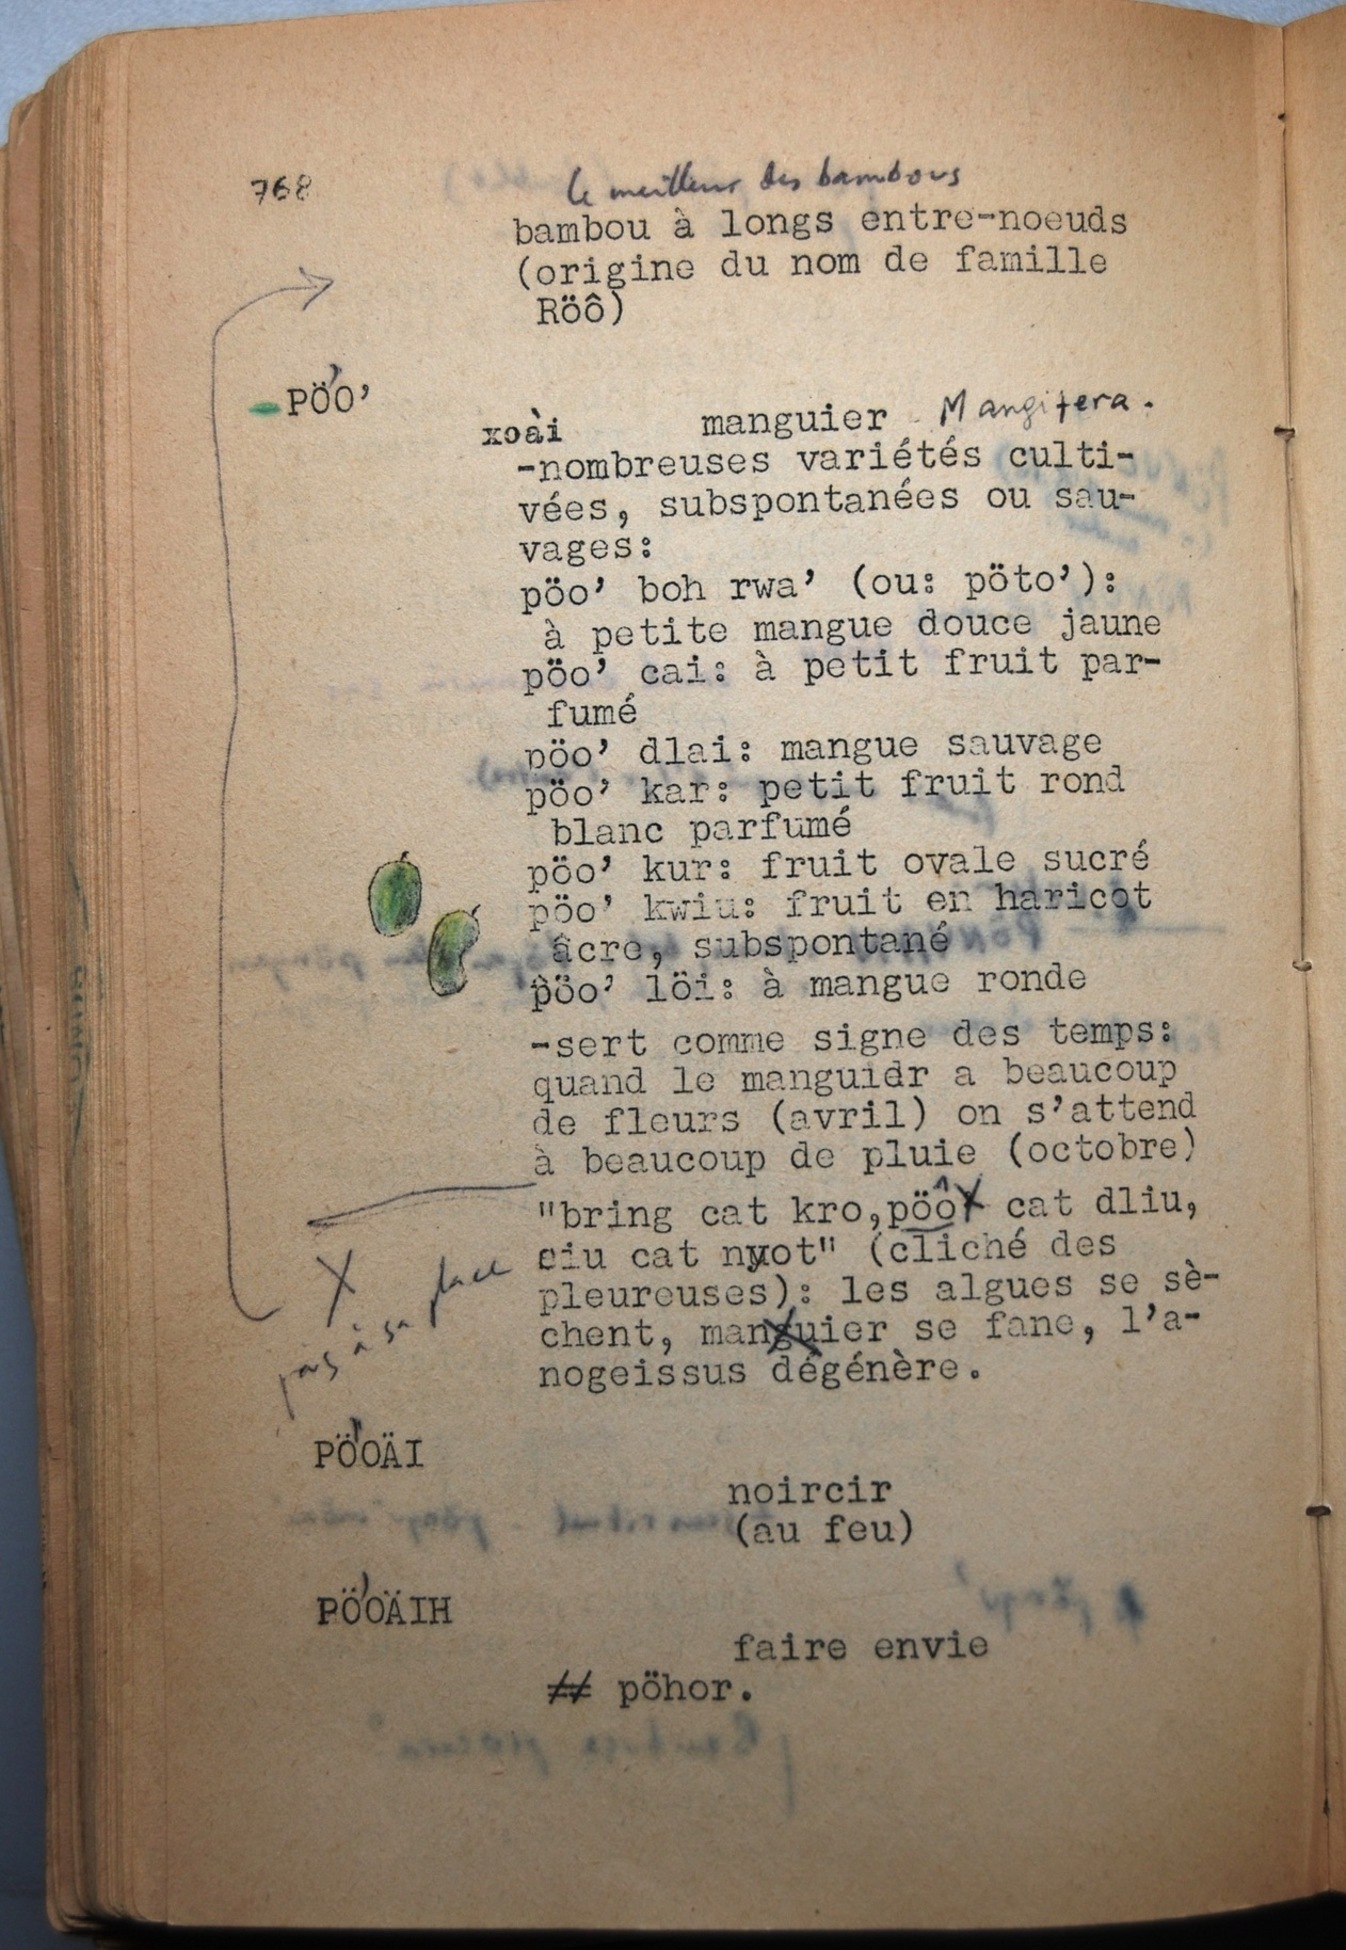 768
le meilleur des bambous
bambou à longs entre-noeuds
(origine du nom de famille
Röô)
-PÖO'
xoài manguier Mangifera.
-nombreuses variétés culti-
vées, subspontanées ou sau-
vages:
pöo' boh rwa' (ou: pöto'):
à petite mangue douce jaune
pöo' cai: à petit fruit par-
fumé
pöo' dlai: mangue sauvage
pöo' kar: petit fruit rond
blanc parfumé
pöo' kur: fruit ovale sucré
pöo' kwiu: fruit en haricot
âcre, subspontané
pöo' löi: à mangue ronde
-sert comme signe des temps:
quand le manguidr a beaucoup
de fleurs (avril) on s'attend
à beaucoup de pluie (octobre)
"bring cat kro,pöô cat dliu,
ciu cat nyot" (cliché des
pleureuses): les algues se sè-
chent, manguier se fane, l'a-
nogeissus dégénère.
X pas à sa place
PÖ'OÄI
noircir
(au feu)
PÖ'OÄIH
faire envie
≠≠ pöhor.